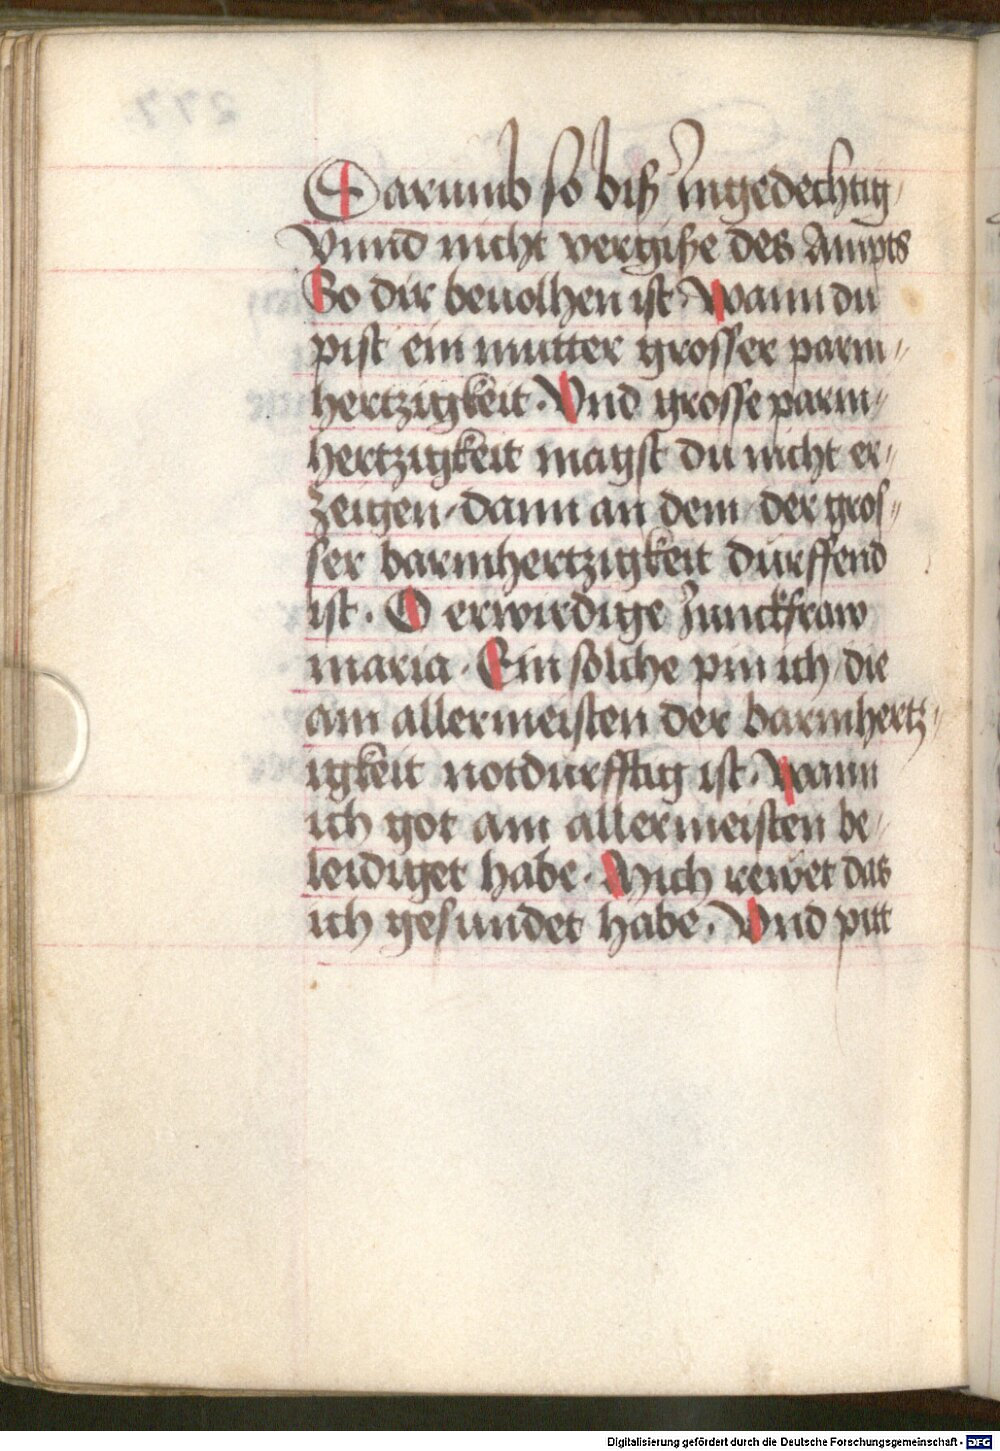 Darumb so biß Ingedechtig
Vnnd nicht vergiße des Ampts
So dir beuolhen ist. Wann du
pist ein mutter grosser parm-
hertzigkeit. Vnd grosse parm-
hertzigkeit magst du nicht er-
zeigen, dann an dem, der gros-
ser barmhertzigkeit dürffend
ist. O erwirdige Junckfraw
maria. Ein solche pin ich, die
am allermeisten der barmhertz-
igkeit notdurfftig ist. Wann
ich got am allermeisten be-
leidiget habe. Mich rewet das
ich gesundet habe. Vnd pitt
Digitalisierung gefördert durch die Deutsche Forschungsgemeinschaft - DFG